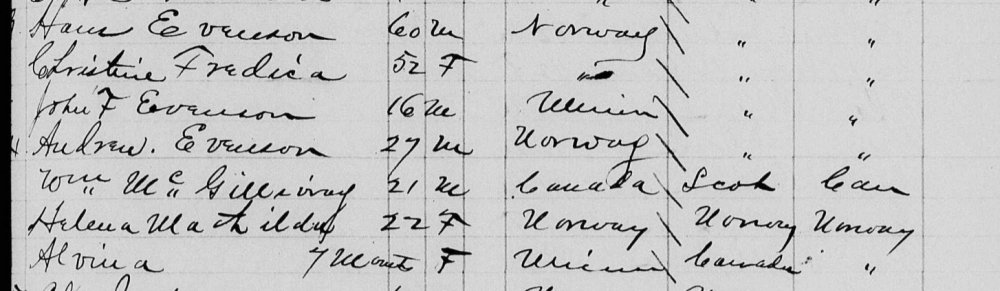 Hans Evenson 60 M Norway " "
Christine Fredica 52 F " " "
John F Evenson 16 M Minn " "
Andrew. Evenson 27 M Norway " "
Wm Mc Gillivray 21 M Canada Scot Can
Helena Mathilda 22 F Norway Norway Norway
Alvina 7 Month F Minn Canada "